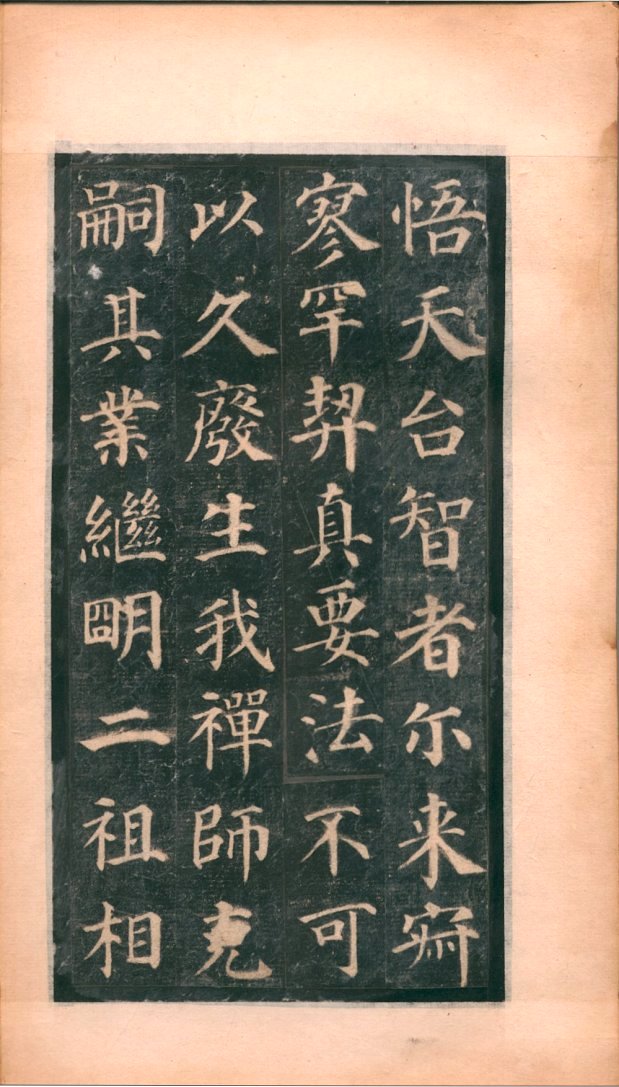 悟天台智者尔来寂
寥罕契真要法不可
以久廢生我禪師克
嗣其業繼明二祖相